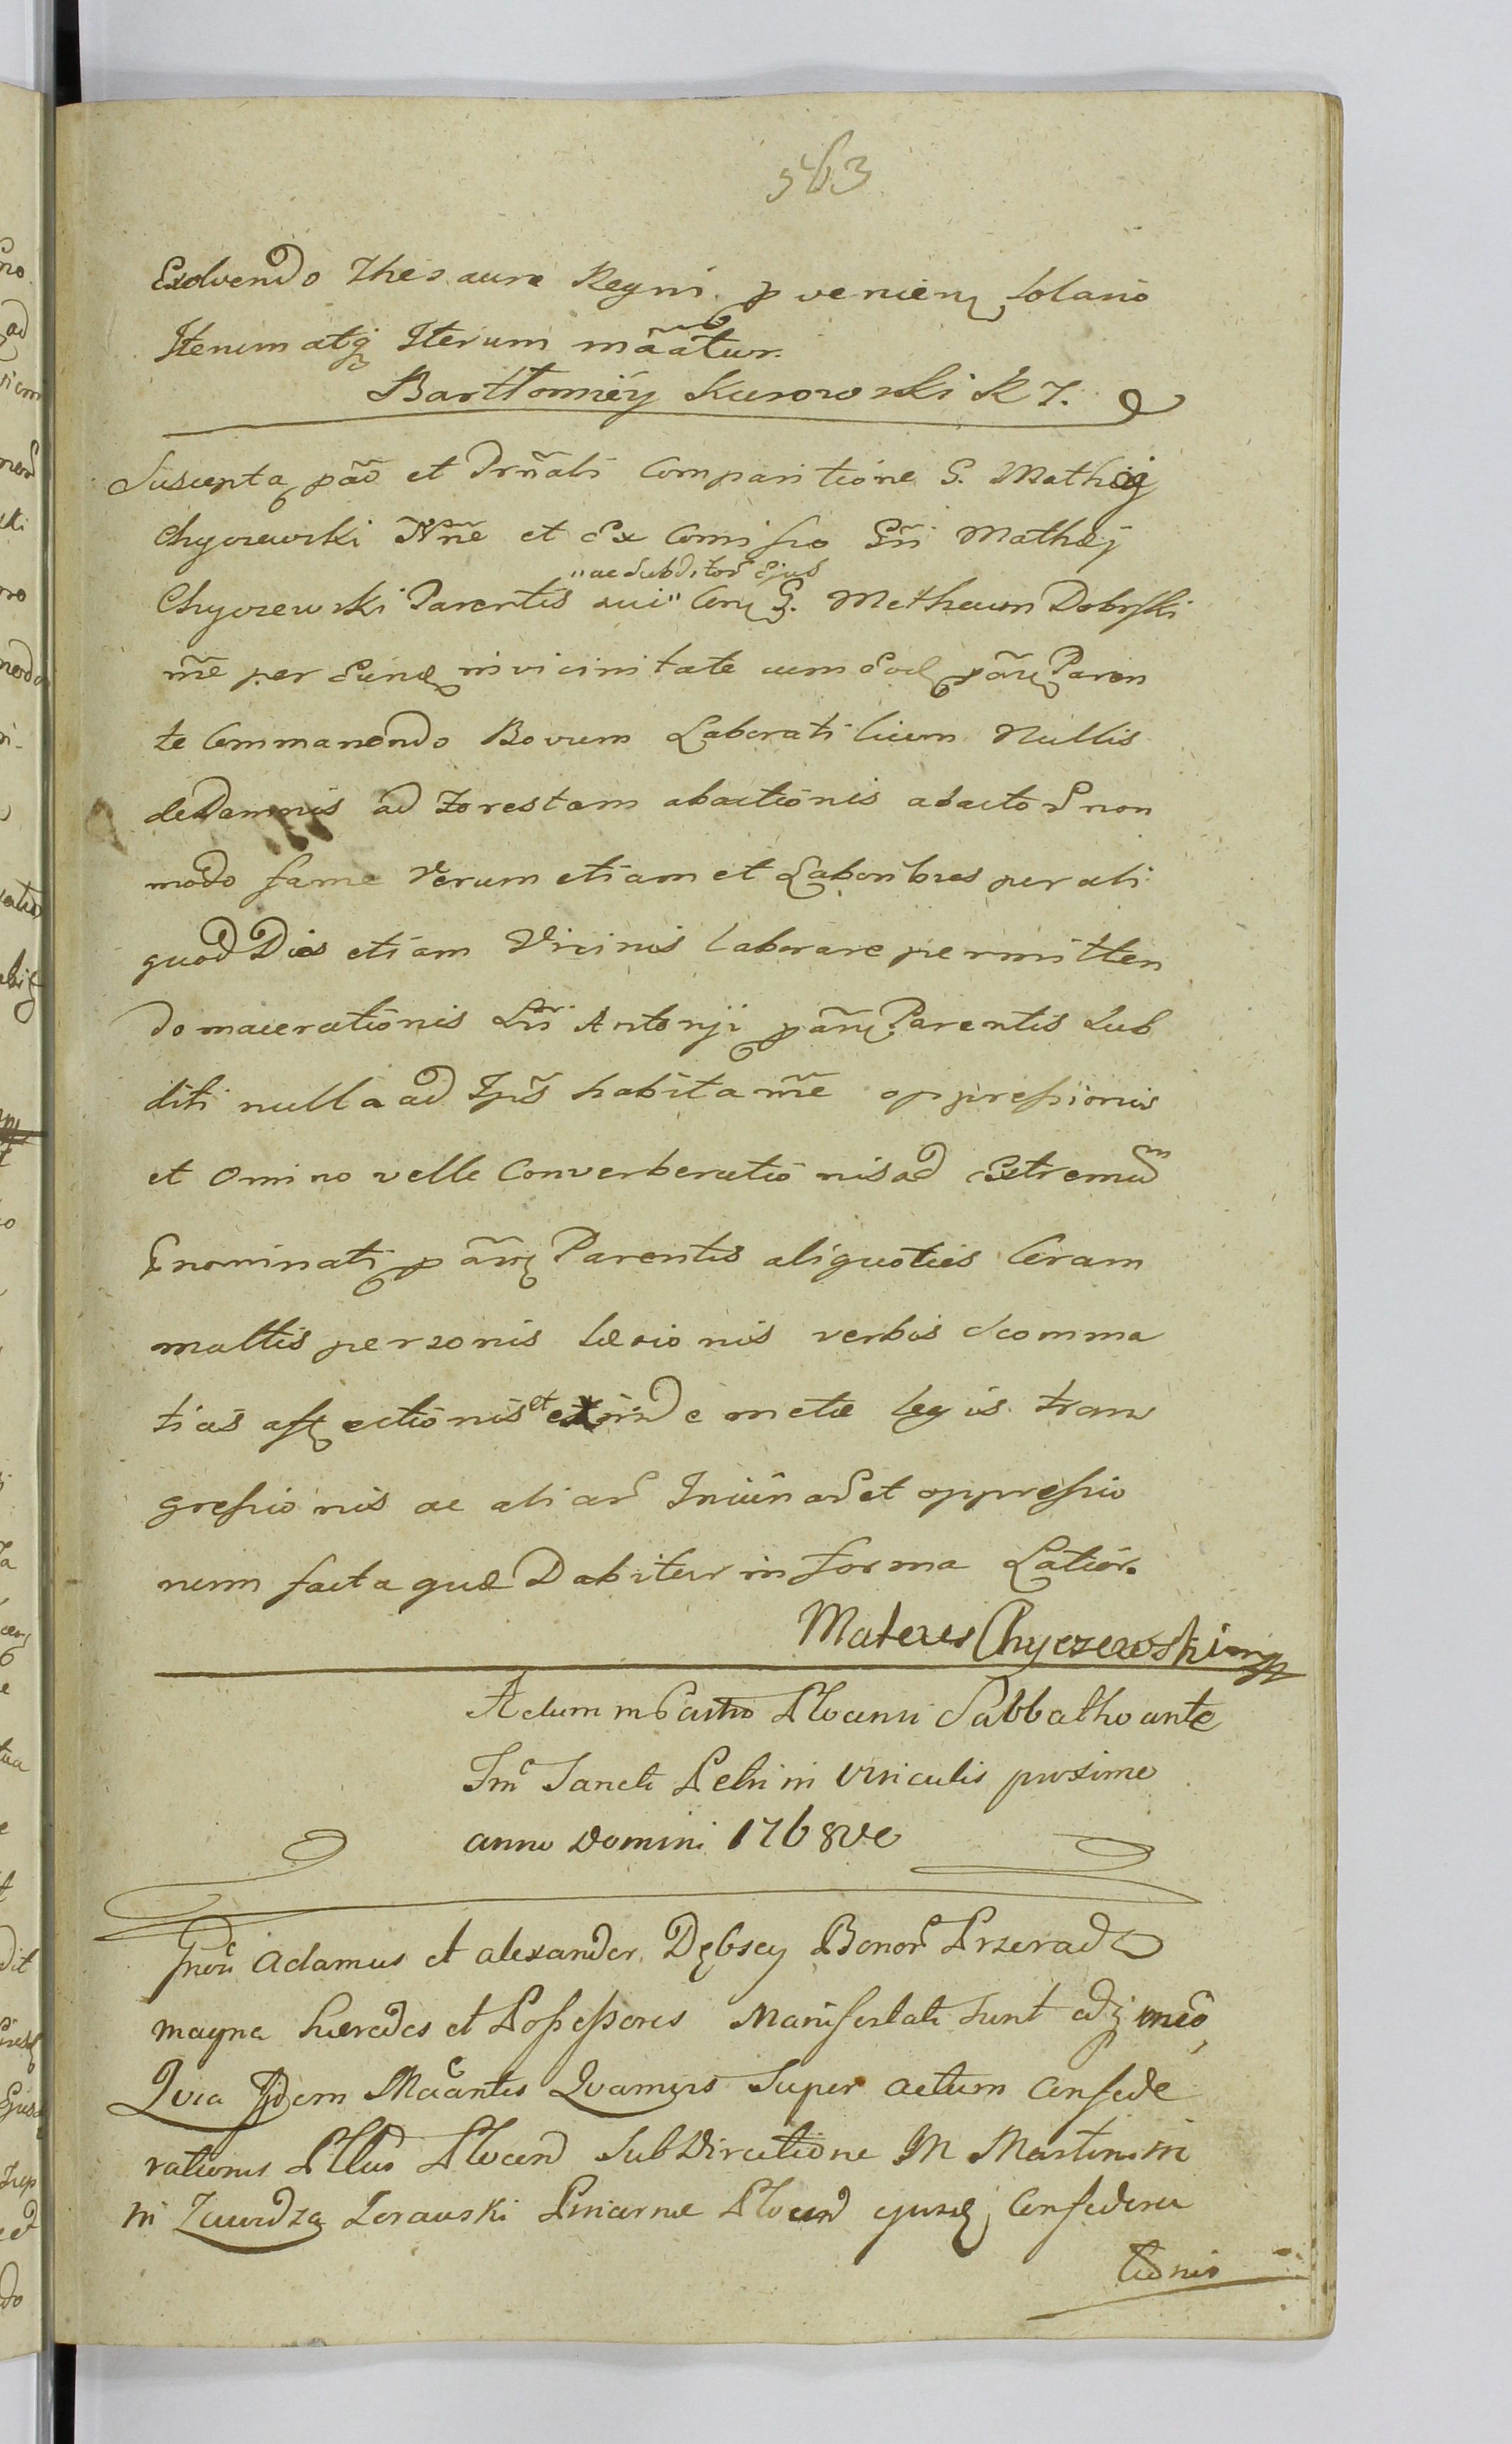 563
Exolvendo Thesaure Regni pvenien Solario
Iterum atq Iterum mãatur.
Bartłomiey Kurowski R T.
Suscepta pão et Drñali Comparitione G. Mathæj
Chyczewski Nñe et Ex Comisso Gñi Mathæj
"ac Subditor Ejus
Chyczewski Parentis sui" Con G. Matheum Dobrski
rñe per Eund in vicinitate cum Eod pãti Paren
te Commanendo Bovum Laboratilium Nullis
de Damnis ad Forestam abactionis abactor non
modo fame Verum etiam et Laboribus per ali
quod Dies etiam Vicinis laborare permitten
do macerationis Lñi Antonji pãti Parentis Sub
diti nulla ad Ipũs habita rñe oppressionis
et Omino velle Converberationis ad Extremum
Enominati pãti Parentis aliquoties Coram
multis personis læsionis verbis Scomma
ticis affectionis et exinde metæ legis trans
gressionis ac aliar Iniũriar et oppressio
num facta quæ Dabitur in forma Latior.
Mateus Chyczewski mp
Actum in Castro Plocensi Sabbatho ante
Fm Sancti Petri in Vinculis proximo
anno Domini 1768vo
Gnoũ Adamus et Alexander Dębscy Bonor Przeradz
magna hæredes et Possessores Manifestati sunt adq
Quia Iidem Mãantes Quamvis Super actum Confede
rationis Pltus Plocen Sub Directione M Martini
in Zawidza Zorawski Pincernæ Plocen ejusd Confedera
tionis